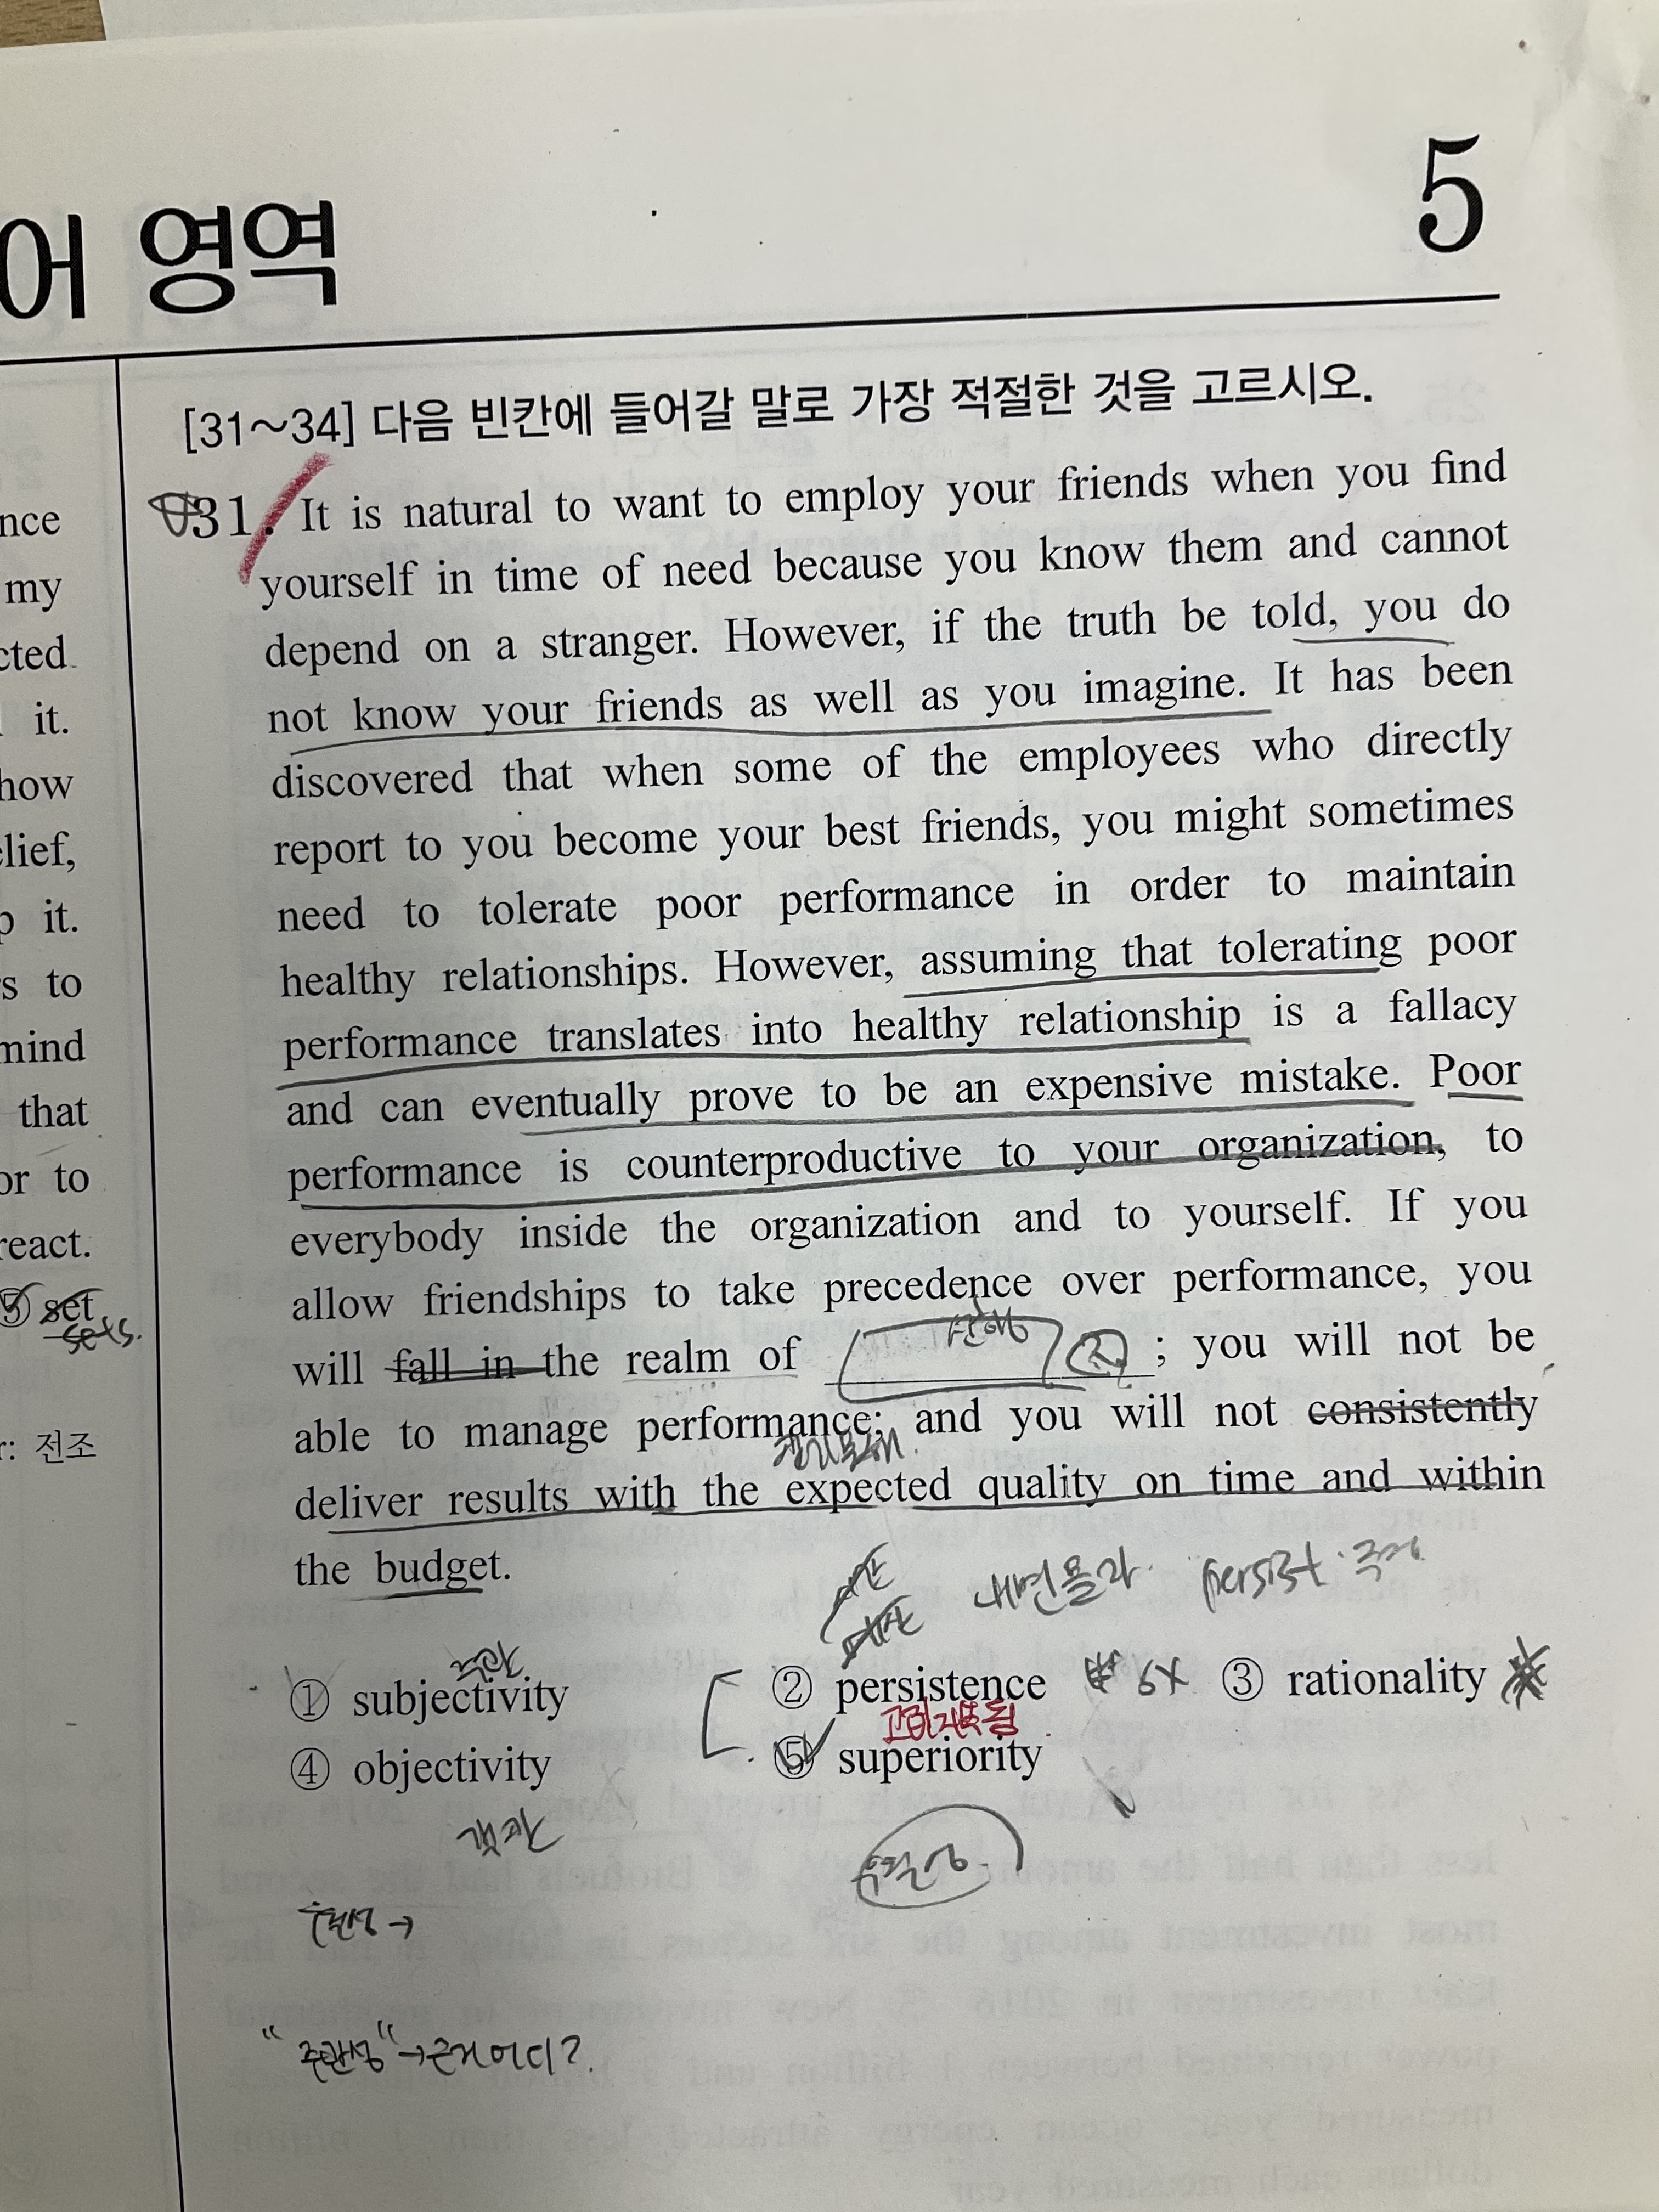 어 영역
5
nce
my
cted
it.
how
elief,
it.
s to
mind
that
or to
react.
⑤ set
sets.
r: 전조
[31~34] 다음 빈칸에 들어갈 말로 가장 적절한 것을 고르시오.
31. It is natural to want to employ your friends when you find
yourself in time of need because you know them and cannot
depend on a stranger. However, if the truth be told, you do
not know your friends as well as you imagine. It has been
discovered that when some of the employees who directly
report to you become your best friends, you might sometimes
need to tolerate poor performance in order to maintain
healthy relationships. However, assuming that tolerating poor
performance translates into healthy relationship is a fallacy
and can eventually prove to be an expensive mistake. Poor
performance is counterproductive to your organization, to
everybody inside the organization and to yourself. If you
allow friendships to take precedence over performance, you
will fall in the realm of ; you will not be
able to manage performance; and you will not consistently
deliver results with the expected quality on time and within
the budget.
persist
① subjectivity ② persistence ③ rationality
④ objectivity ⑤ superiority
객관
우월성.
"주관성" → 근거 어디?